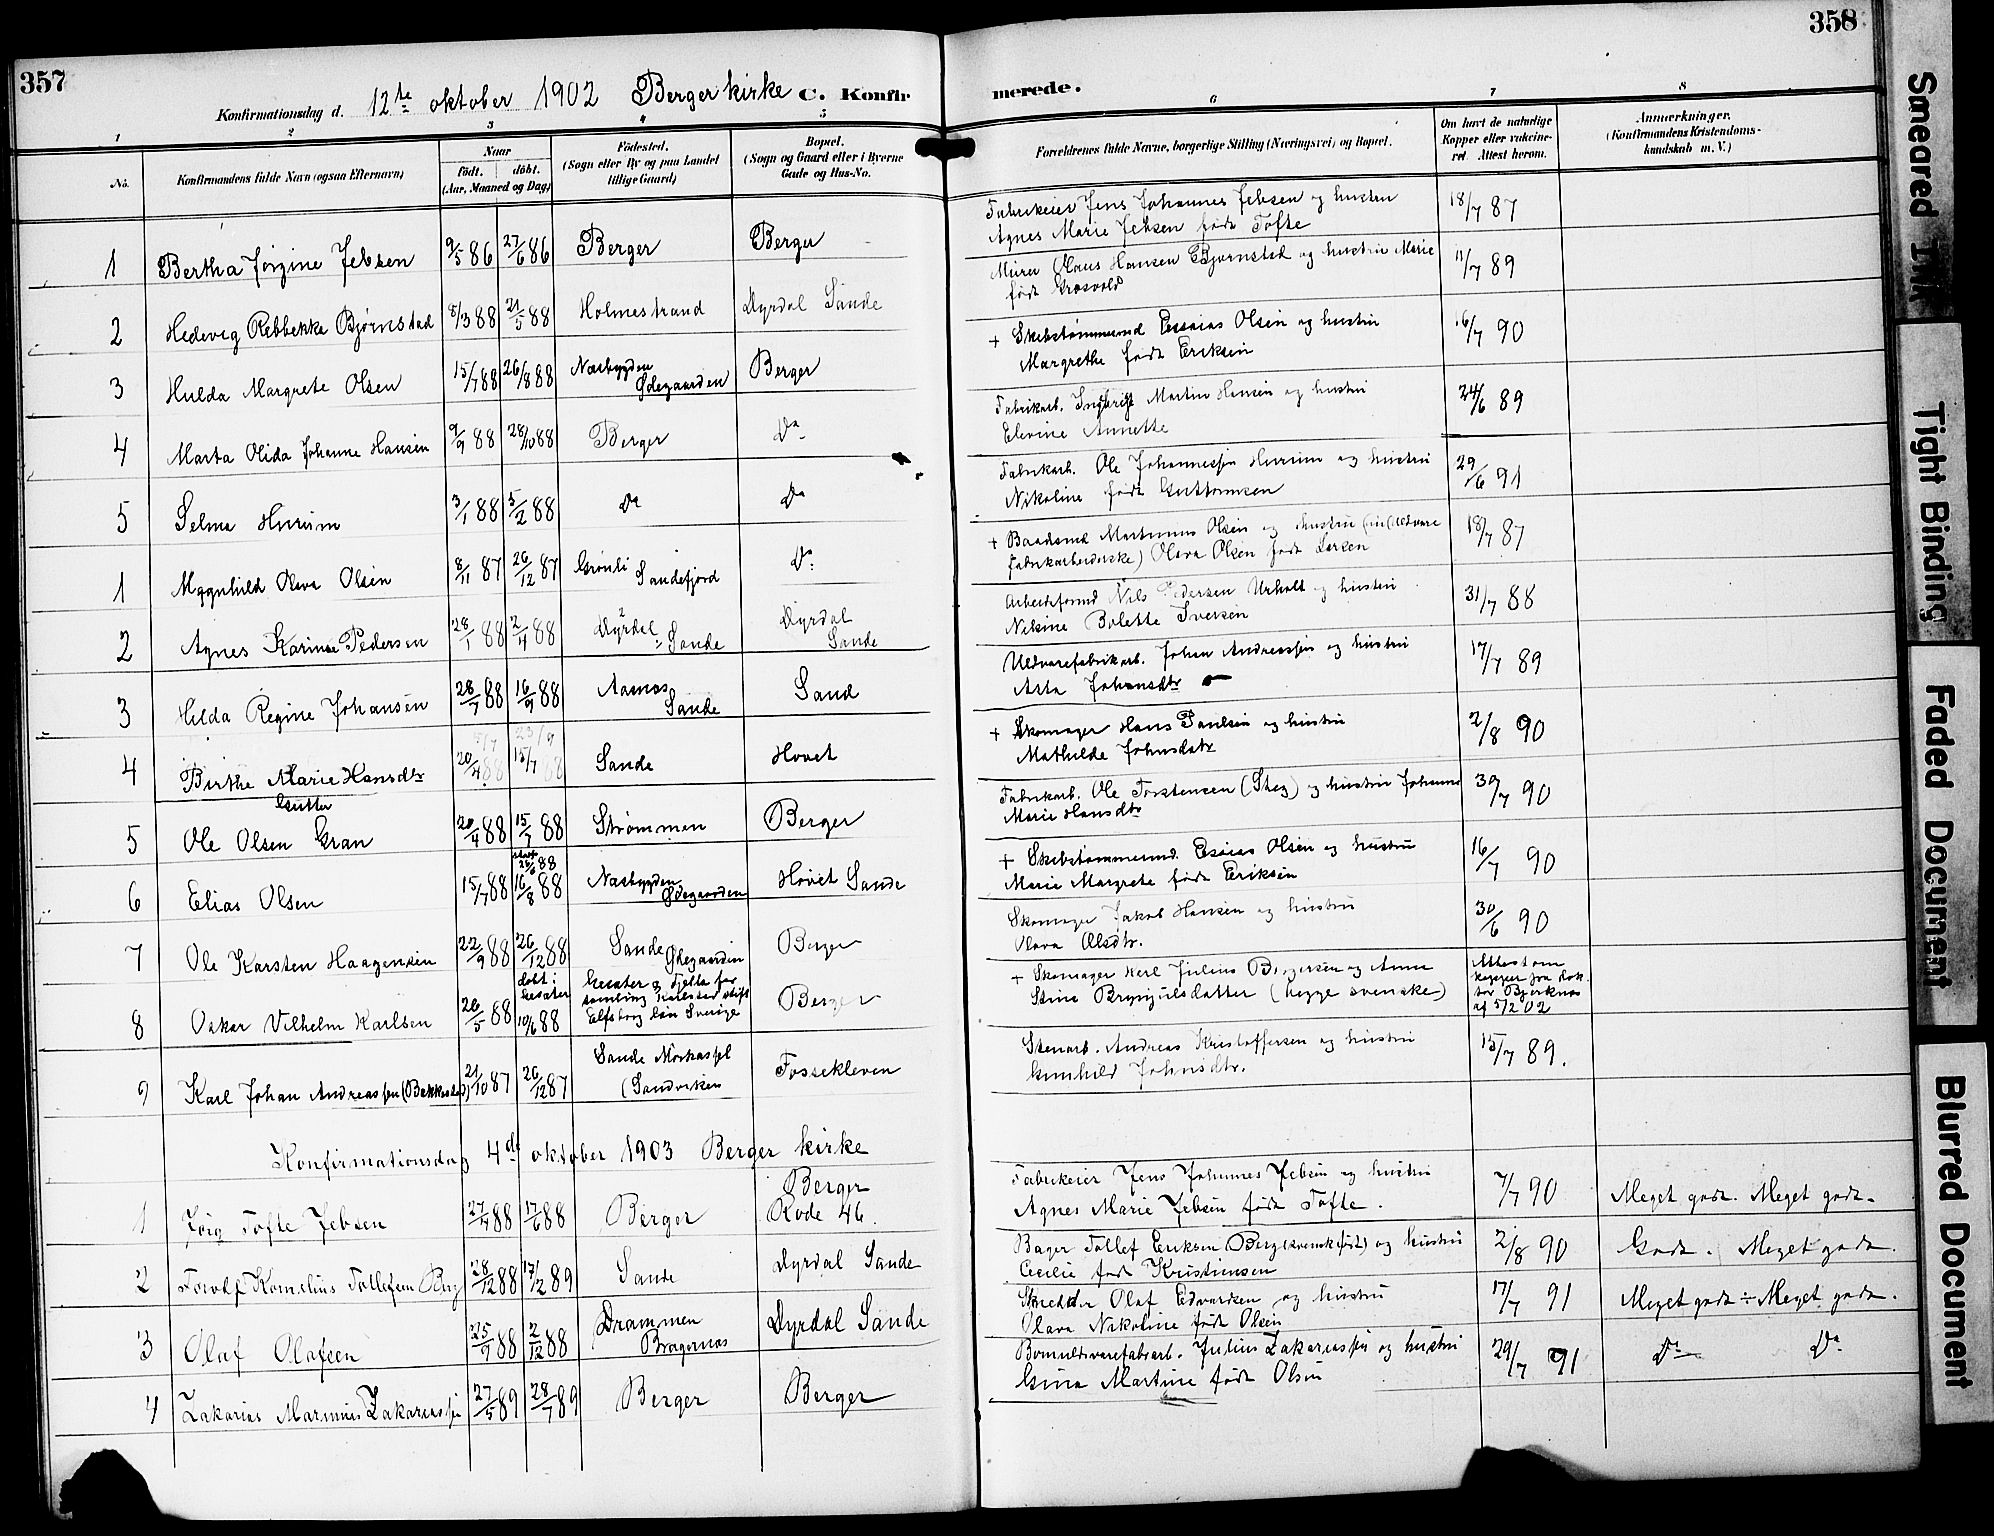 357
Konfirmationsdag d. 12te oktober 1902 Berger kirke C. Konfir
1 2 3 4 5
No. Konfirmandens fulde Navn (ogsaa Efternavn) Naar født. døbt. (Aar, Maaned og Dag) Fødested. (Sogn eller By og paa Landet tillige Gaard) Bopæl. (Sogn og Gaard eller i Byerne Gade og Hus-No.
1 Bertha Jørgine Jebsen 9/5 86 27/6 86 Berger Berger
2 Hedevig Rebbekka Bjørnstad 8/3 88 21/5 88 Holmestrand Dyrdal Sande
3 Hulda Margrete Olsen 15/7 88 26/8 88 Næsbygden Ødegaarden Berger
4 Marta Olida Johanne Hansen 9/9 88 28/10 88 Berger Do
5 Selma Hurum 3/1 88 5/2 88 Do Do
1 Magnhild Olava Olsen 8/11 87 26/12 87 Grønli Sandefjord Do
2 Agnes Karine Pedersen 28/1 88 2/4 88 Dyrdal Sande Dyrdal Sande
3 Hilda Regine Johansen 28/7 88 16/9 88 Aasnes Sande Sand
4 Birthe Marie Hansdtr 20/4 88 15/7 88 Sande Hovet
Gutter
5 Ole Olsen Gran 20/4 88 15/7 88 Strømmen Berger
6 Elias Olsen 15/7 88 16/8 88 Næsbygden Ødegaarden Hovet Sande
7 Ole Karsten Haagensen 22/9 88 26/12 88 Sande Ødegaarden Berger
8 Oskar Vilhelm Karlsen 26/5 88 døbt i 10/6 88 Elfsborg län Sverige Berger
9 Karl Johan Andreassen (Bekkestad) 21/10 87 26/12 87 Sande (Sandvirken Fossekleven
Konfirmationsdag 4de oktober 1903 Berger kirke
1 Jørg Tofte Jebsen 27/4 88 17/6 88 Berger Berger Rode 46.
2 Kornelius Tollefsen Berg 28/12 88 17/2 89 Sande Dyrdal Sande
3 Olaf Olafsen 25/9 88 2/12 88 Drammen Bragernes Dyrdal Sande
4 Zakarias Marinius Zakariassen 27/5 89 28/7 89 Berger Berger
358
merede.
6 7 8
Forældrenes fulde Navne, borgerlige Stilling (Næringsvei) og Bopæl. Om havt de naturlige Kopper eller vakcineret. Attest herom. Anmærkninger. (Konfirmandens Kristendomskundskab m. V.)
Fabrikeier Jens Johannes Jebsen og hustru 18/7 87
Agnes Marie Jebsen født Tofte
Murer Hans Hansen Bjørnstad og hustru Marie 11/7 89
født Grosvold
+ Skibstømmermd Essaias Olsen og hustru 16/7 90
Margrethe født Eriksen
Fabrikarb. Ingbrigt Martin Hansen og hustru 24/6 89
Elevine Annette
Fabrikarb. Ole Johannessen Hurum og hustru 29/6 91
Nikoline født Guttormsen
+ Baadsmd Martinius Olsen og hustru 18/7 87
Fabrikarbeiderske) Olava Olsen født Larsen
Arbeidsformd Nils Pedersen Urholt og hustru 31/7 88
Nikine Bolette Iversen
Uldvarefabrikarb. Johan Andreassen og hustru 17/7 89
Asta Johansdtr
+ Skomager Hans Paulsen og hustru 2/8 90
Mathilde Johnsdatr
Fabrikarb. Ole Torstensen og hustru Johanne 30/7 90
Marie Hansdtr
+ Skibstømmermd. Esaias Olsen og hustru 16/7 90
Marie Margrete født Eriksen
Skomager Jakob Hansen og hustru 30/6 90
Olava Olsdtr.
+ Skomager Julius Birgersen og Anna Attest om
Stina Bryngulsdatter (begge svenske) kopper fra doktor Bjerknæs af 5/2 02
Stenarb. Andreas Kristoffersen og hustru 15/7 89.
Gunhild Johnsdtr.
Fabrikeier Jens Johannes Jebsen og hustru 7/7 90 Meget godt. Meget godt.
Agnes Marie Jebsen født Tofte.
Bager Tollef Eriksen Berg (svensk født) og hustru 2/8 90 Godt. Meget godt.
Cecilie født Kristiansen
Skredder Olaf Edvardsen og hustru 17/7 91 Meget godt ÷ Meget godt.
Olava Nikoline født Olsen
Bomuldsvarefabrarb. Julius Zakariassen og hustru 29/7 91 Do Do
Gina Martine født Olsen
Smeared Ink
Tight Binding
Faded Document
Blurred Document